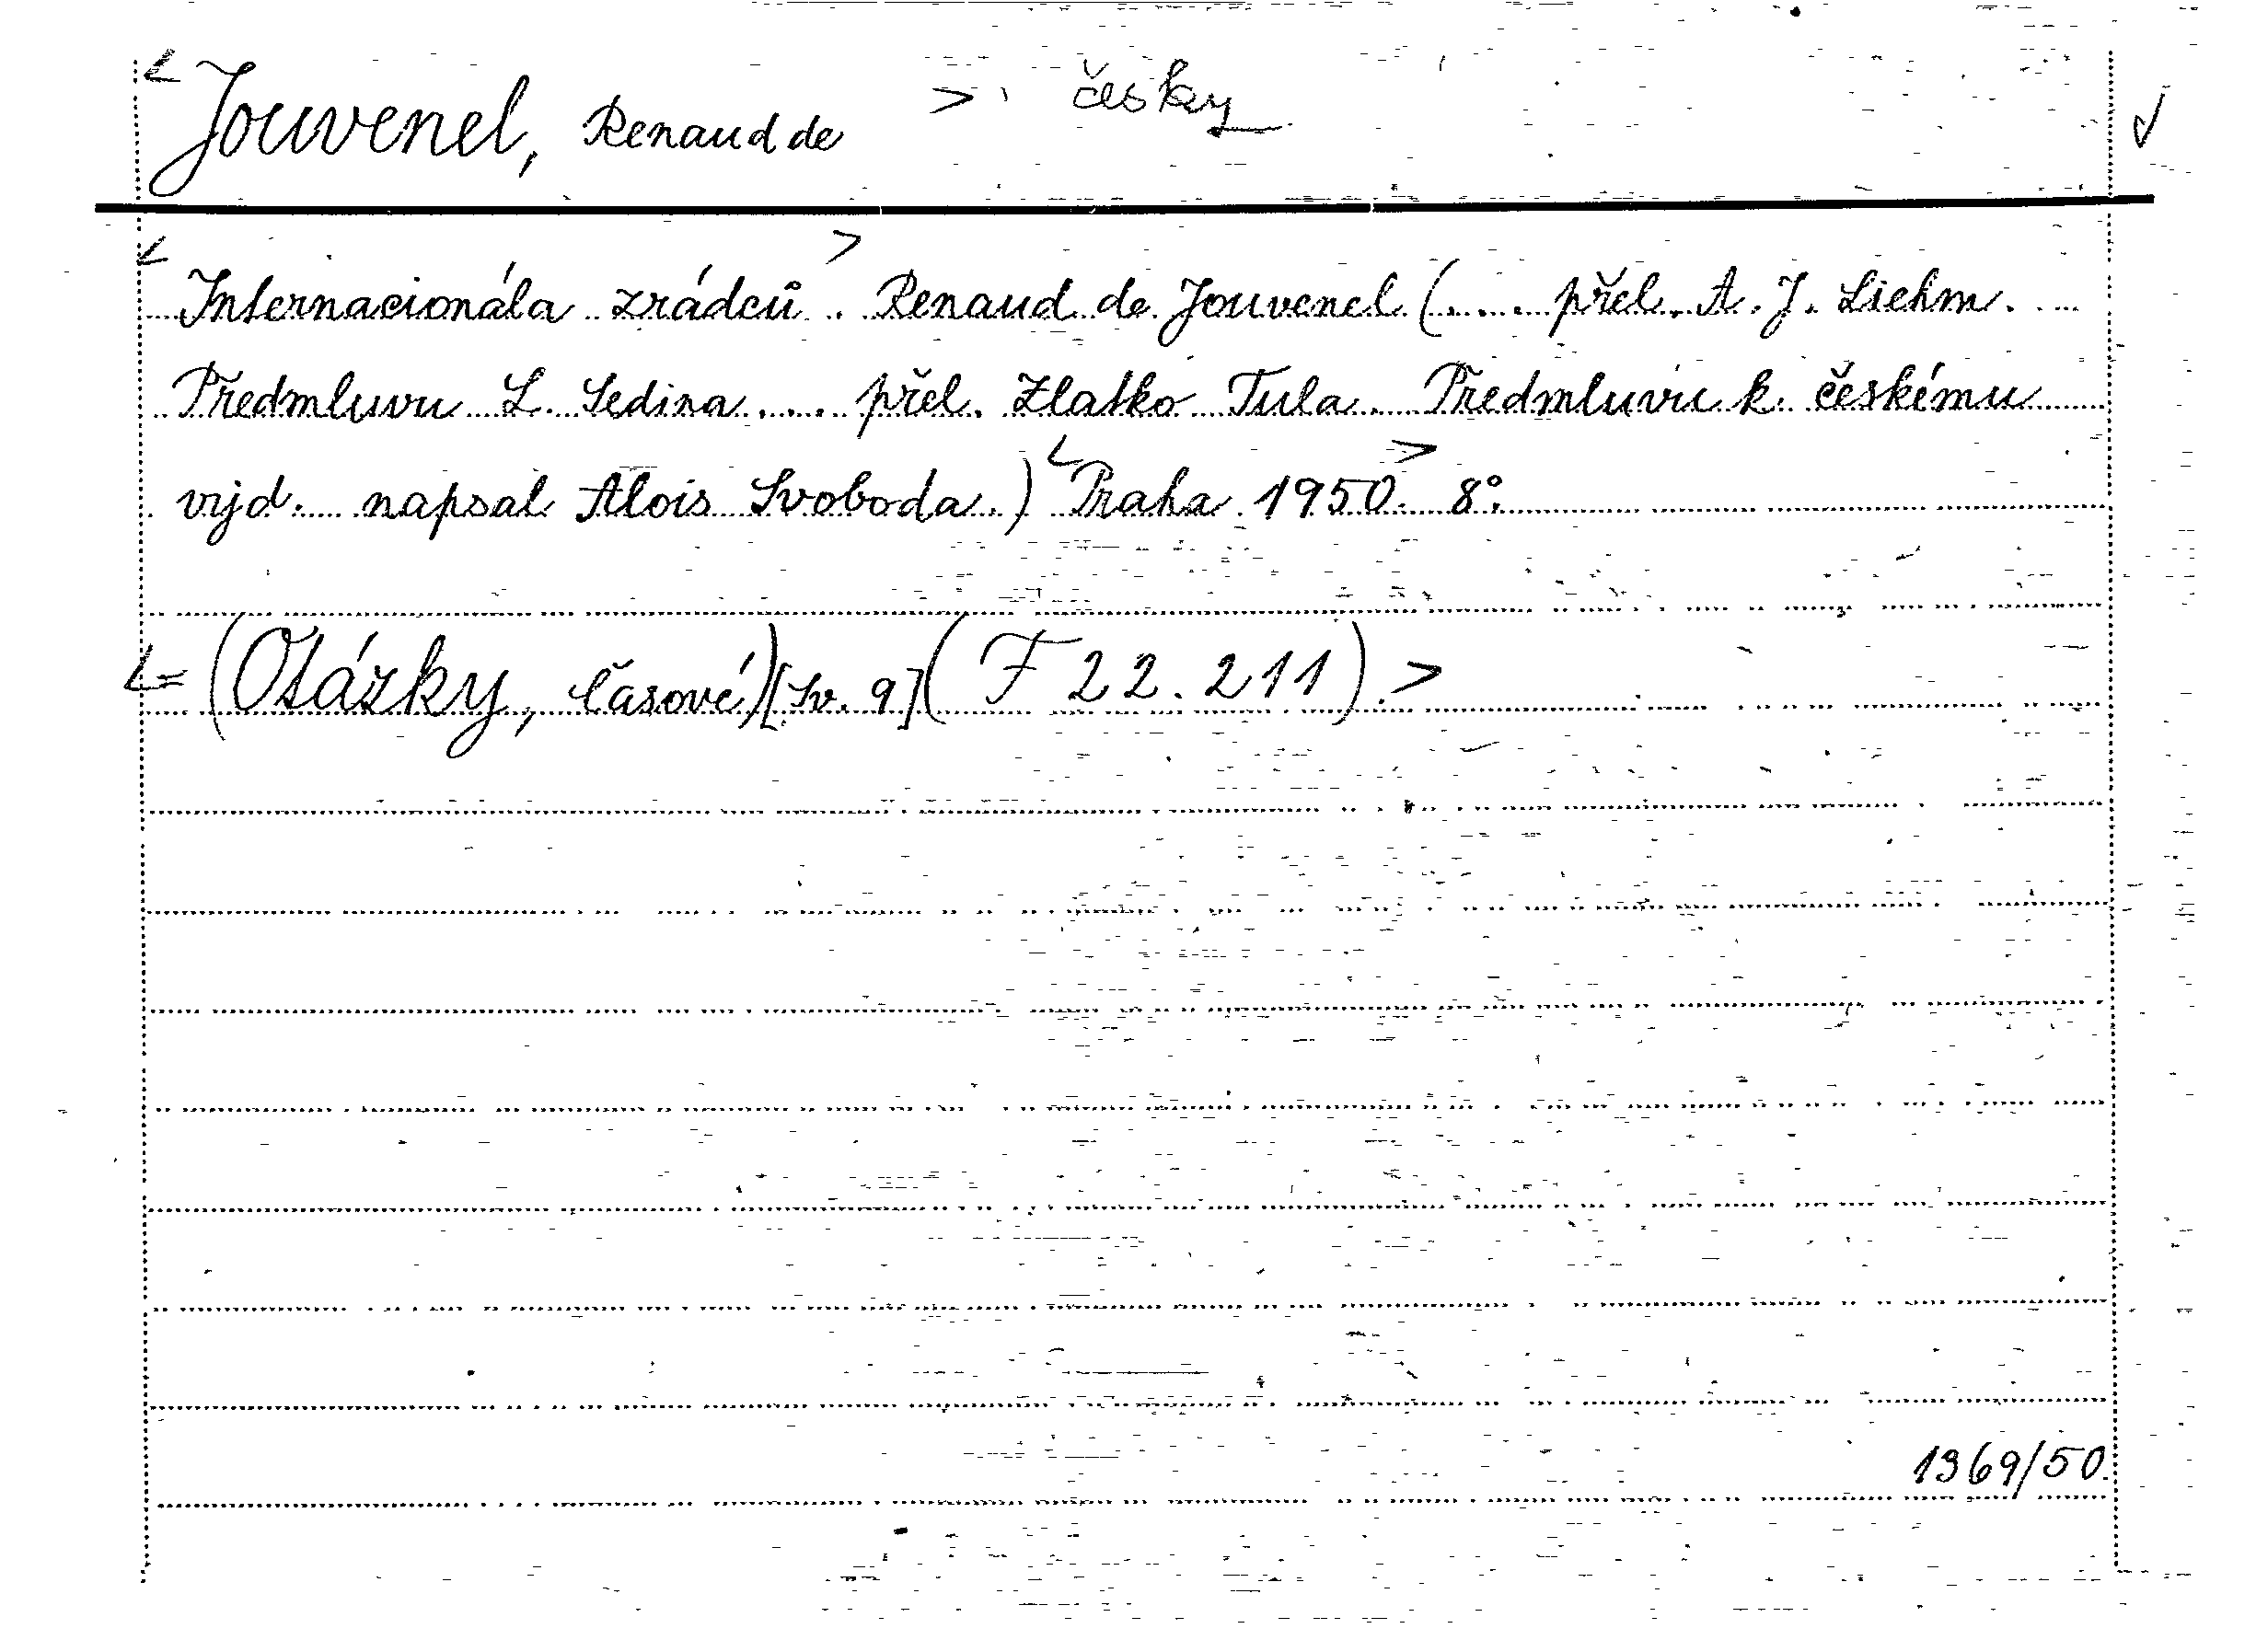 < Jouvenel, Renaud de > česky
< Internacionála zrádců > . Renaud de Jouvenel (... přel. A. J. Liehm.
Předmluvu L. Sedina ... přel. Zlatko Tula. Předmluvu k českému
vyd. napsal Alois Svoboda.) < Praha 1950. > 8°.
<= (Otázky, časové) [Sv. 9] (F 22.211). >
1369/50.